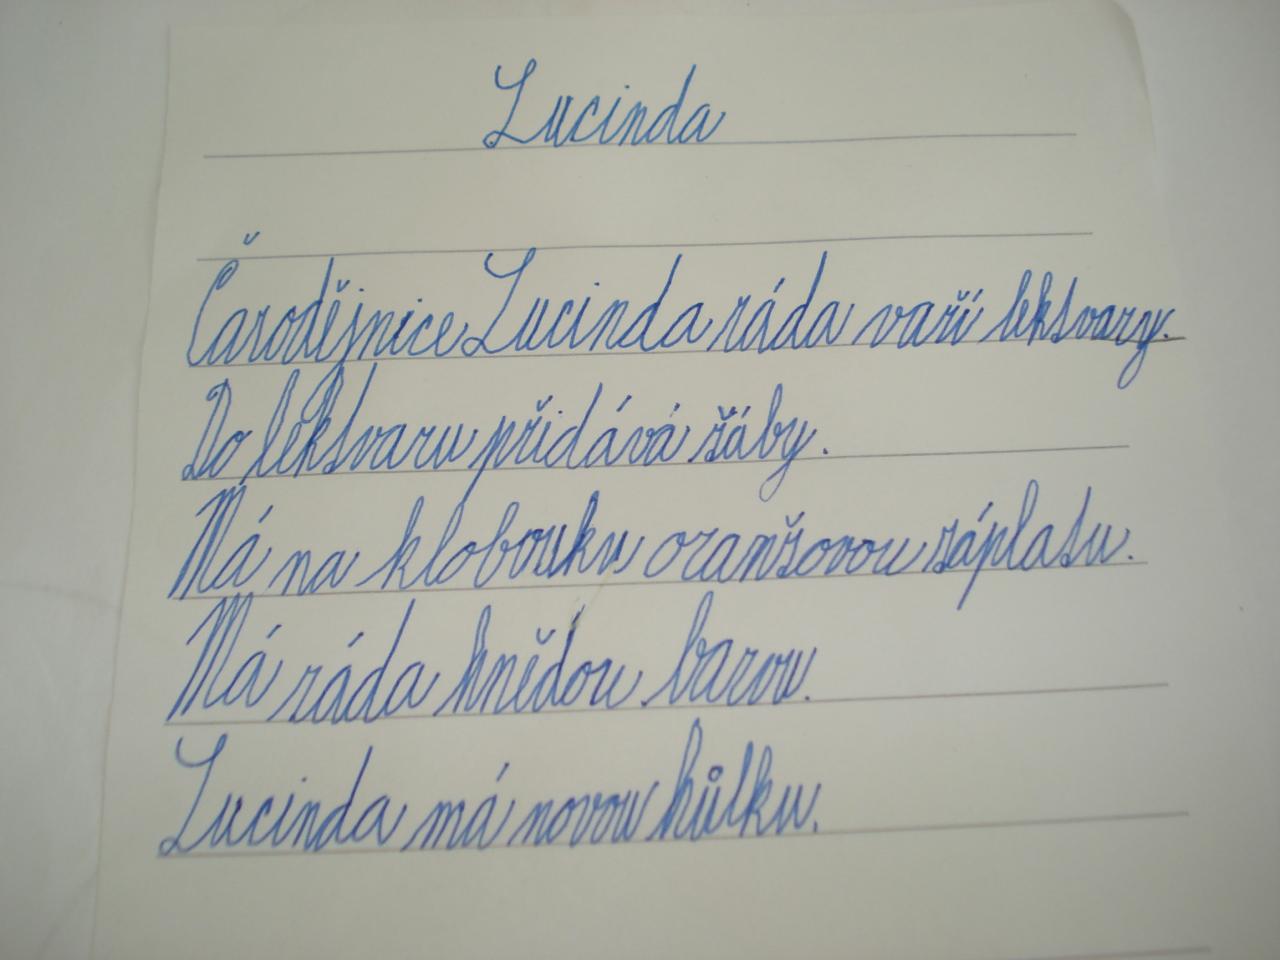 Lucinda
Čarodějnice Lucinda ráda vaří lektvary.
Do lektvaru přidává žáby.
Má na klobouku oranžovou záplatu.
Má ráda hnědou barvu.
Lucinda má novou hůlku.